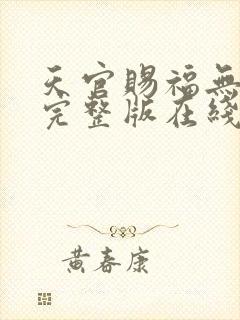 天官賜福無
完整版在綫
黃春康